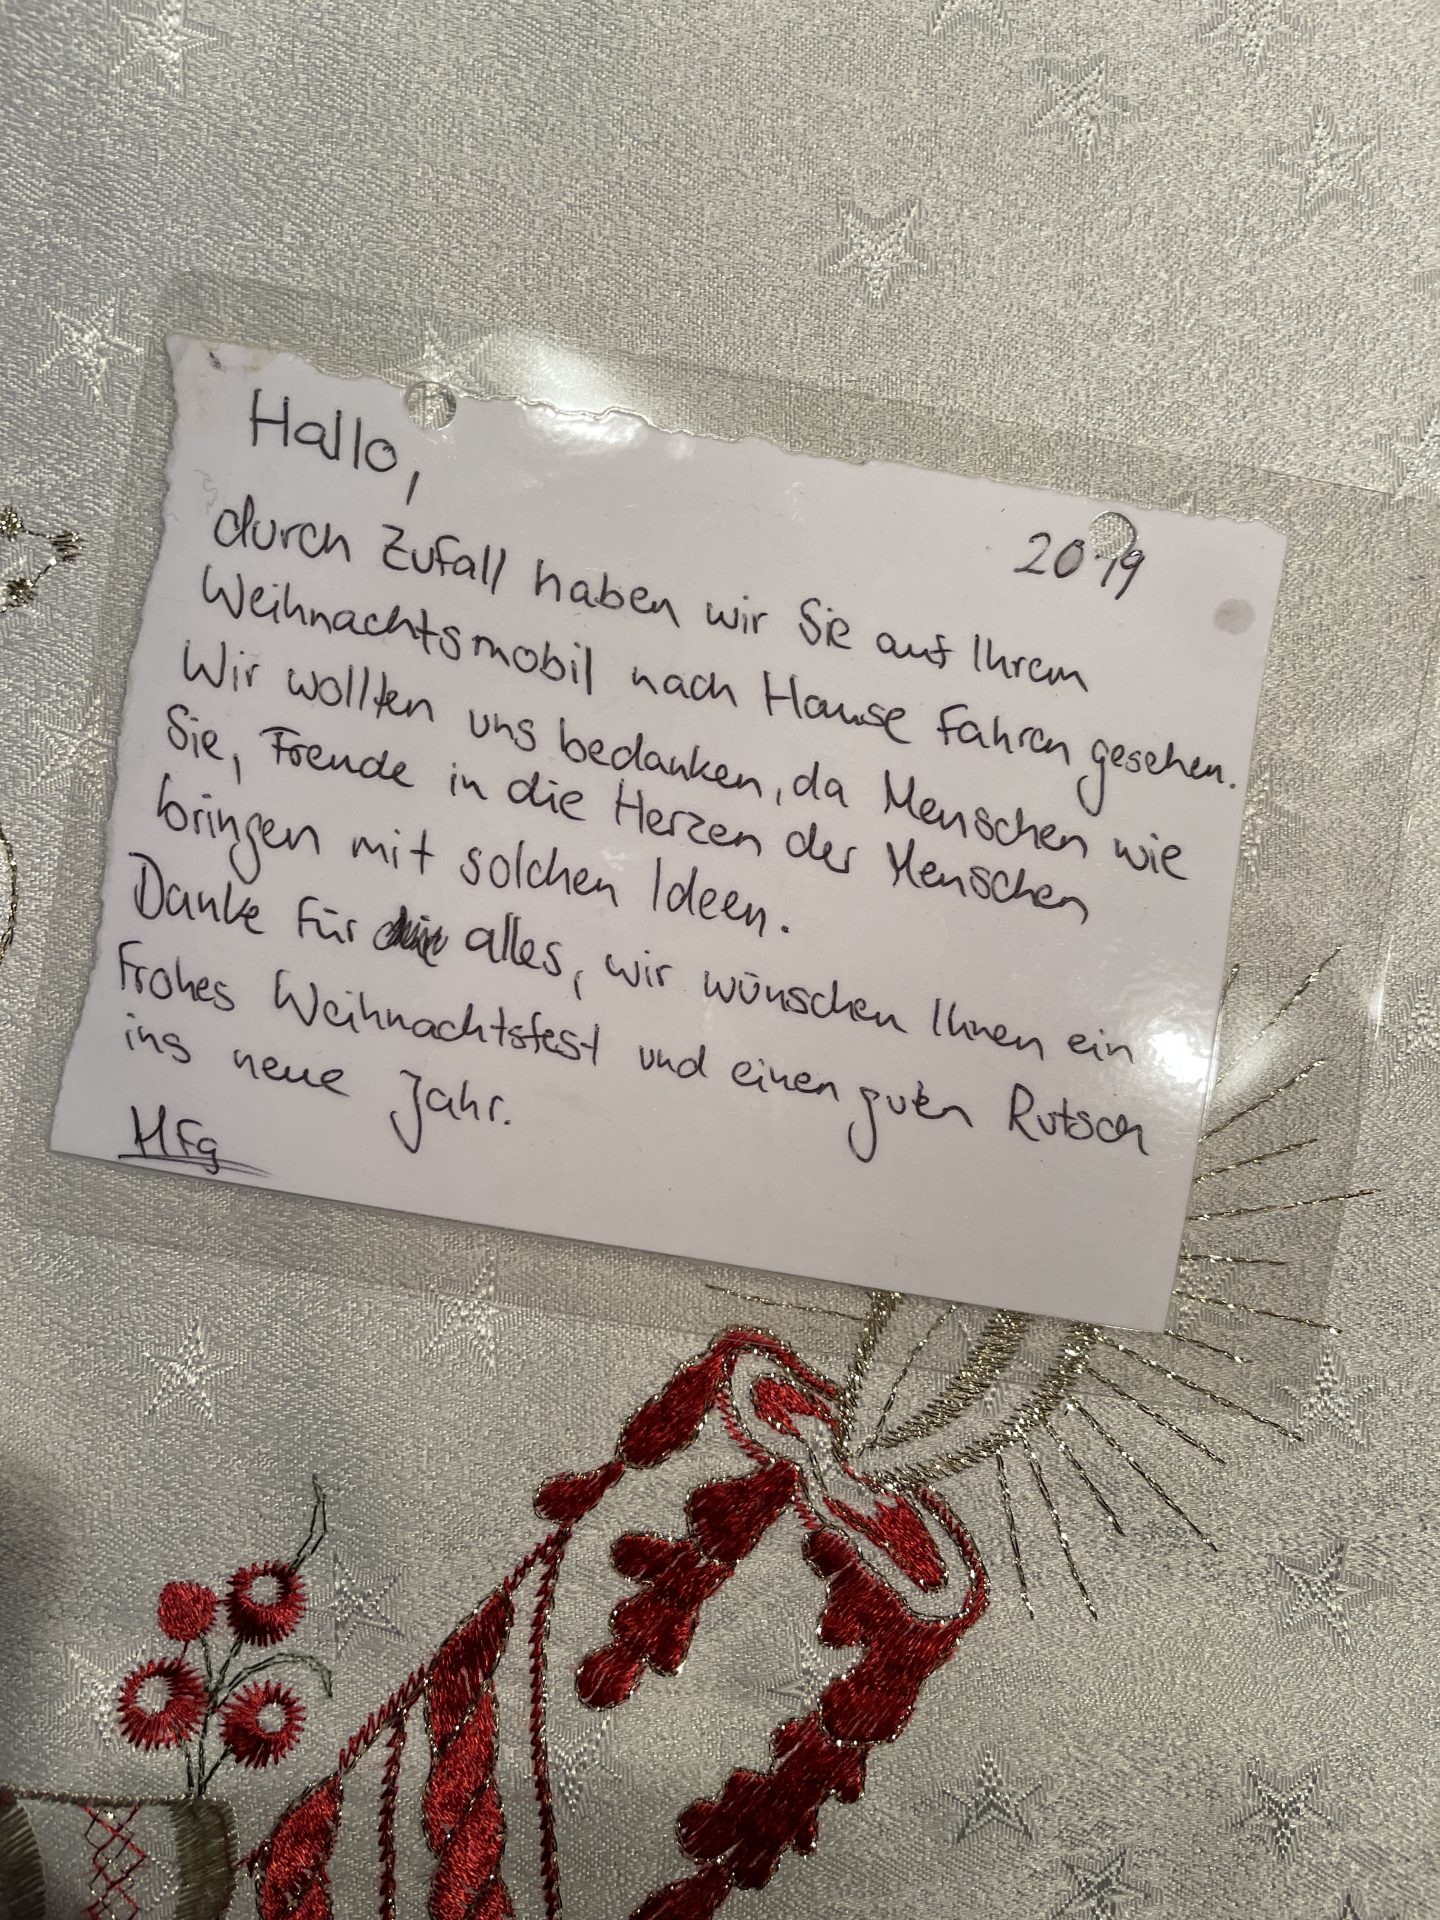 Hallo,
2019
durch Zufall haben wir Sie auf Ihrem
Weihnachtsmobil nach Hause fahren gesehen.
Wir wollten uns bedanken, da Menschen wie
Sie, Freude in die Herzen der Menschen
bringen mit solchen Ideen.
Danke für alles, wir wünschen Ihnen ein
frohes Weihnachtsfest und einen guten Rutsch
ins neue Jahr.
Mfg